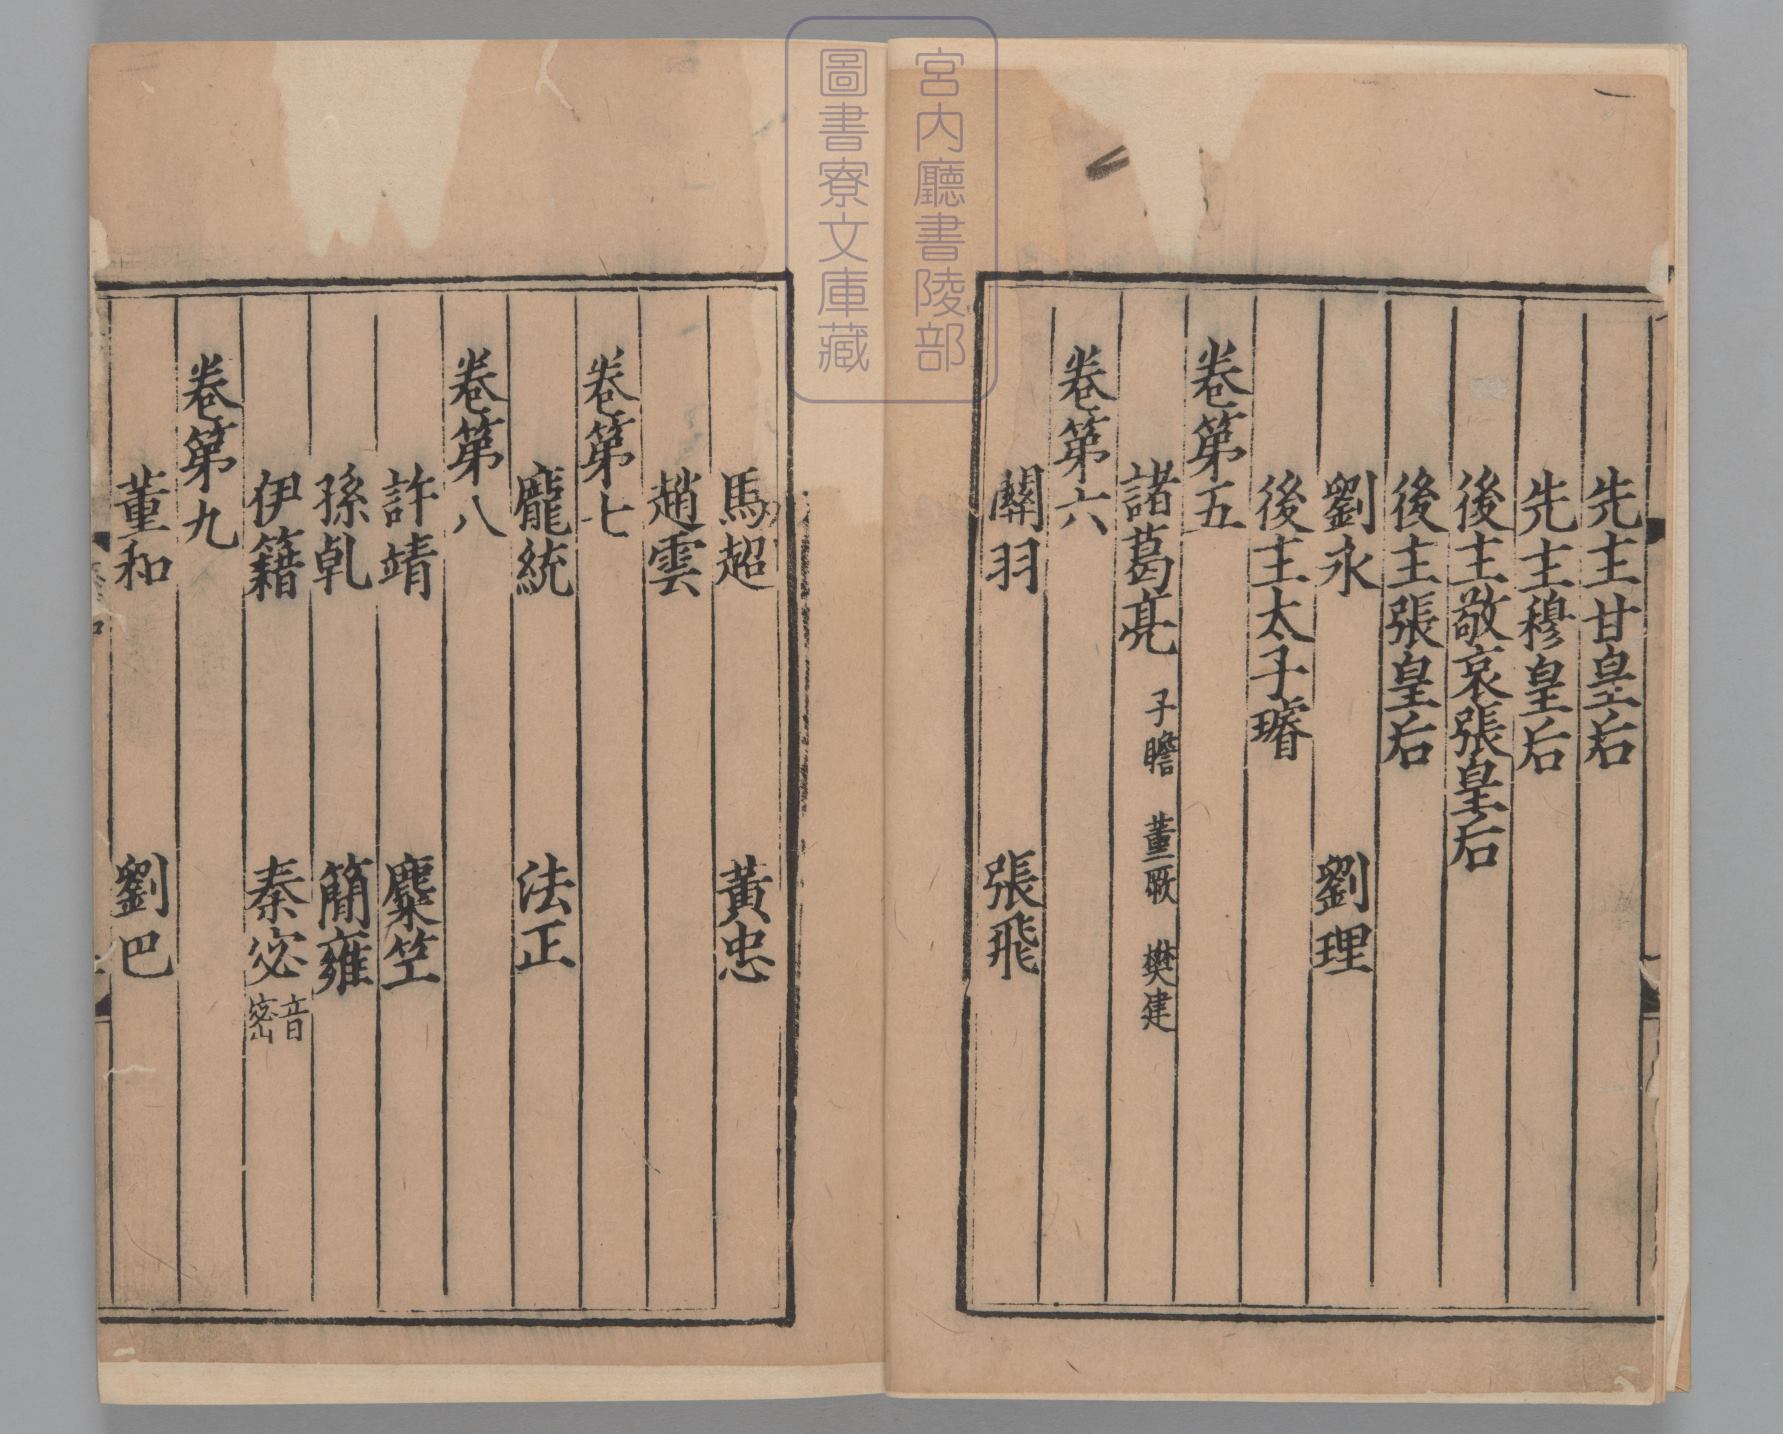 先主甘皇后
先主穆皇后
後主敬哀張皇后
後主張皇后
劉永 劉理
後主太子璿
卷第五
諸葛亮 子瞻 董厥 樊建
卷第六
關羽 張飛
馬超 黃忠
趙雲
卷第七
龐統 法正
卷第八
許靖 麋竺
孫乹 簡雍
伊籍 秦宓 音密
卷第九
董和 劉巴
宮内廳書陵部
圖書寮文庫藏